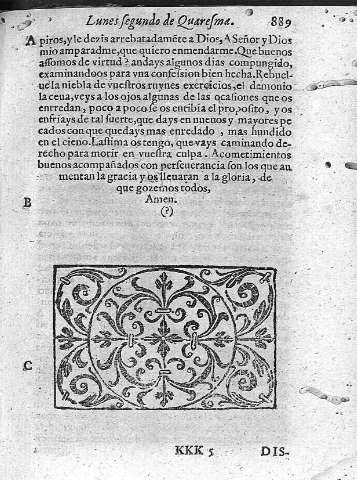 Lunes segundo de Quaresma. 889
A piros, y le dezis arrebatadamẽte a Dios, A Señor y Dios
mio amparadme, que quiero enmendarme. Que buenos
assomos de virtud? andays algunos dias compungido,
examinandoos para vna confession bien hecha. Rebuel-
ue la niebla de vuestros ruynes exercicios, el demonio
la ceua, veys a los ojos algunas de las ocasiones que os
enredan, poco a poco se os entibia el proposito, y os
enfriays de tal suerte, que days en nueuos y mayores pe
cados con que quedays mas enredado, mas hundido
en el cieno. Lastima os tengo, que vays caminando de-
recho para morir en vuestra culpa. Acometimientos
buenos acompañados con perseuerancia son los que au
mentan la gracia y os lleuaran a la gloria, de
que gozemos todos,
B Amen.
(?)
C
KKK 5 DIS-